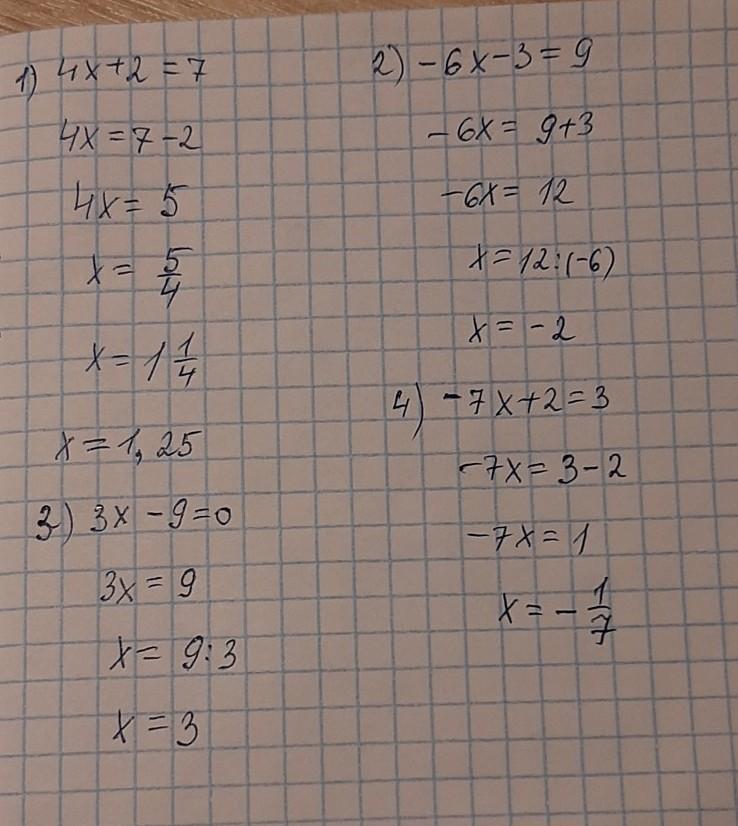 1) 4x+2=7
4x=7-2
4x=5
x=5/4
x=1 1/4
x=1,25
2) -6x-3=9
-6x=9+3
-6x=12
x=12:(-6)
x=-2
3) 3x-9=0
3x=9
x=9:3
x=3
4) -7x+2=3
-7x=3-2
-7x=1
x=-1/7